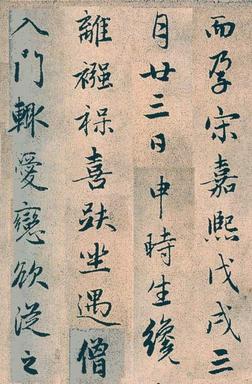 而孕宋嘉熙戊戌三
月廿三日申時生纔
離襁褓喜趺坐遇僧
入門輙愛戀欲從之